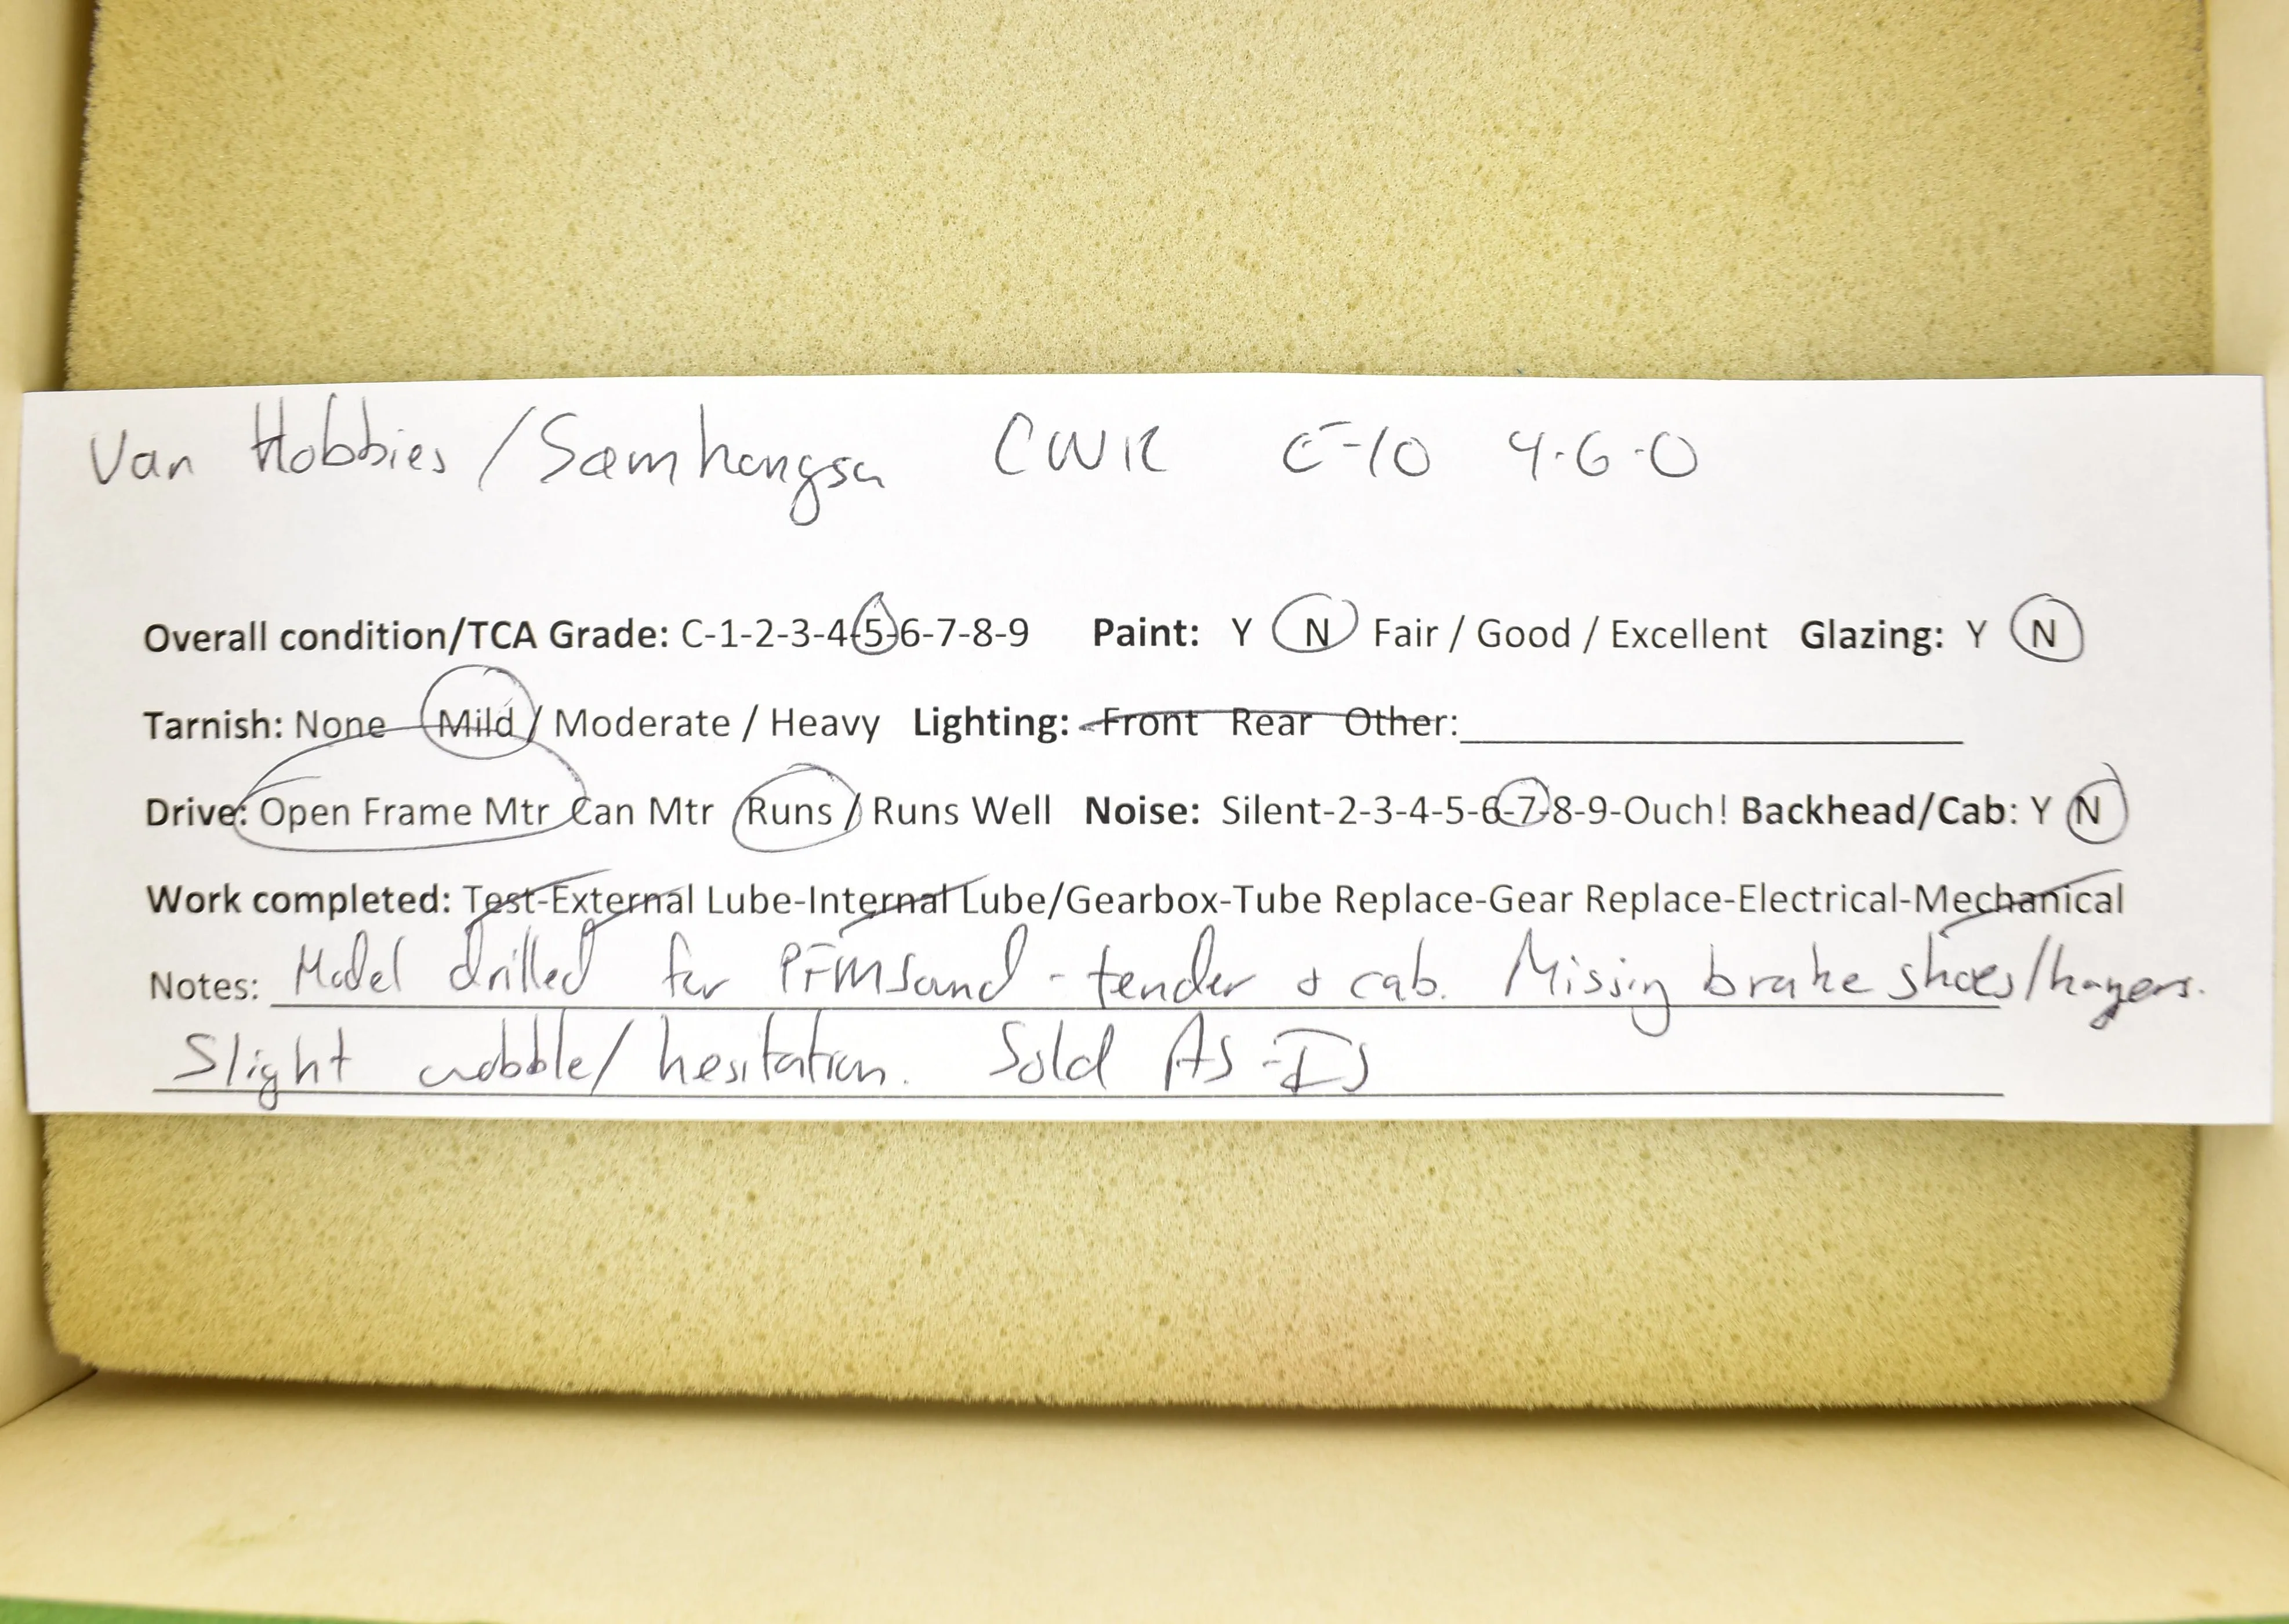 Van Hobbies/Samhongsa CNR E-10 4-6-0
Overall condition/TCA Grade: C-1-2-3-4-5-6-7-8-9 Paint: Y N Fair / Good / Excellent Glazing: Y N
Tarnish: None Mild / Moderate / Heavy Lighting: Front Rear Other:
Drive: Open Frame Mtr Can Mtr Runs / Runs Well Noise: Silent-2-3-4-5-6-7-8-9-Ouch! Backhead/Cab: Y N
Work completed: Test-External Lube-Internal Lube/Gearbox-Tube Replace-Gear Replace-Electrical-Mechanical
Notes: Model drilled for PFM Sound - tender & cab. Missing brake shoes/hangers.
Slight wobble/hesitation. Sold As-Is